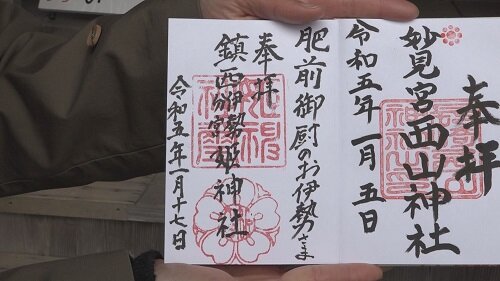 奉拝
妙見宮西山神社
令和五年一月五日
肥前御厨のお伊勢さま
奉拝
鎮西伊勢姫神社
令和五年一月十七日